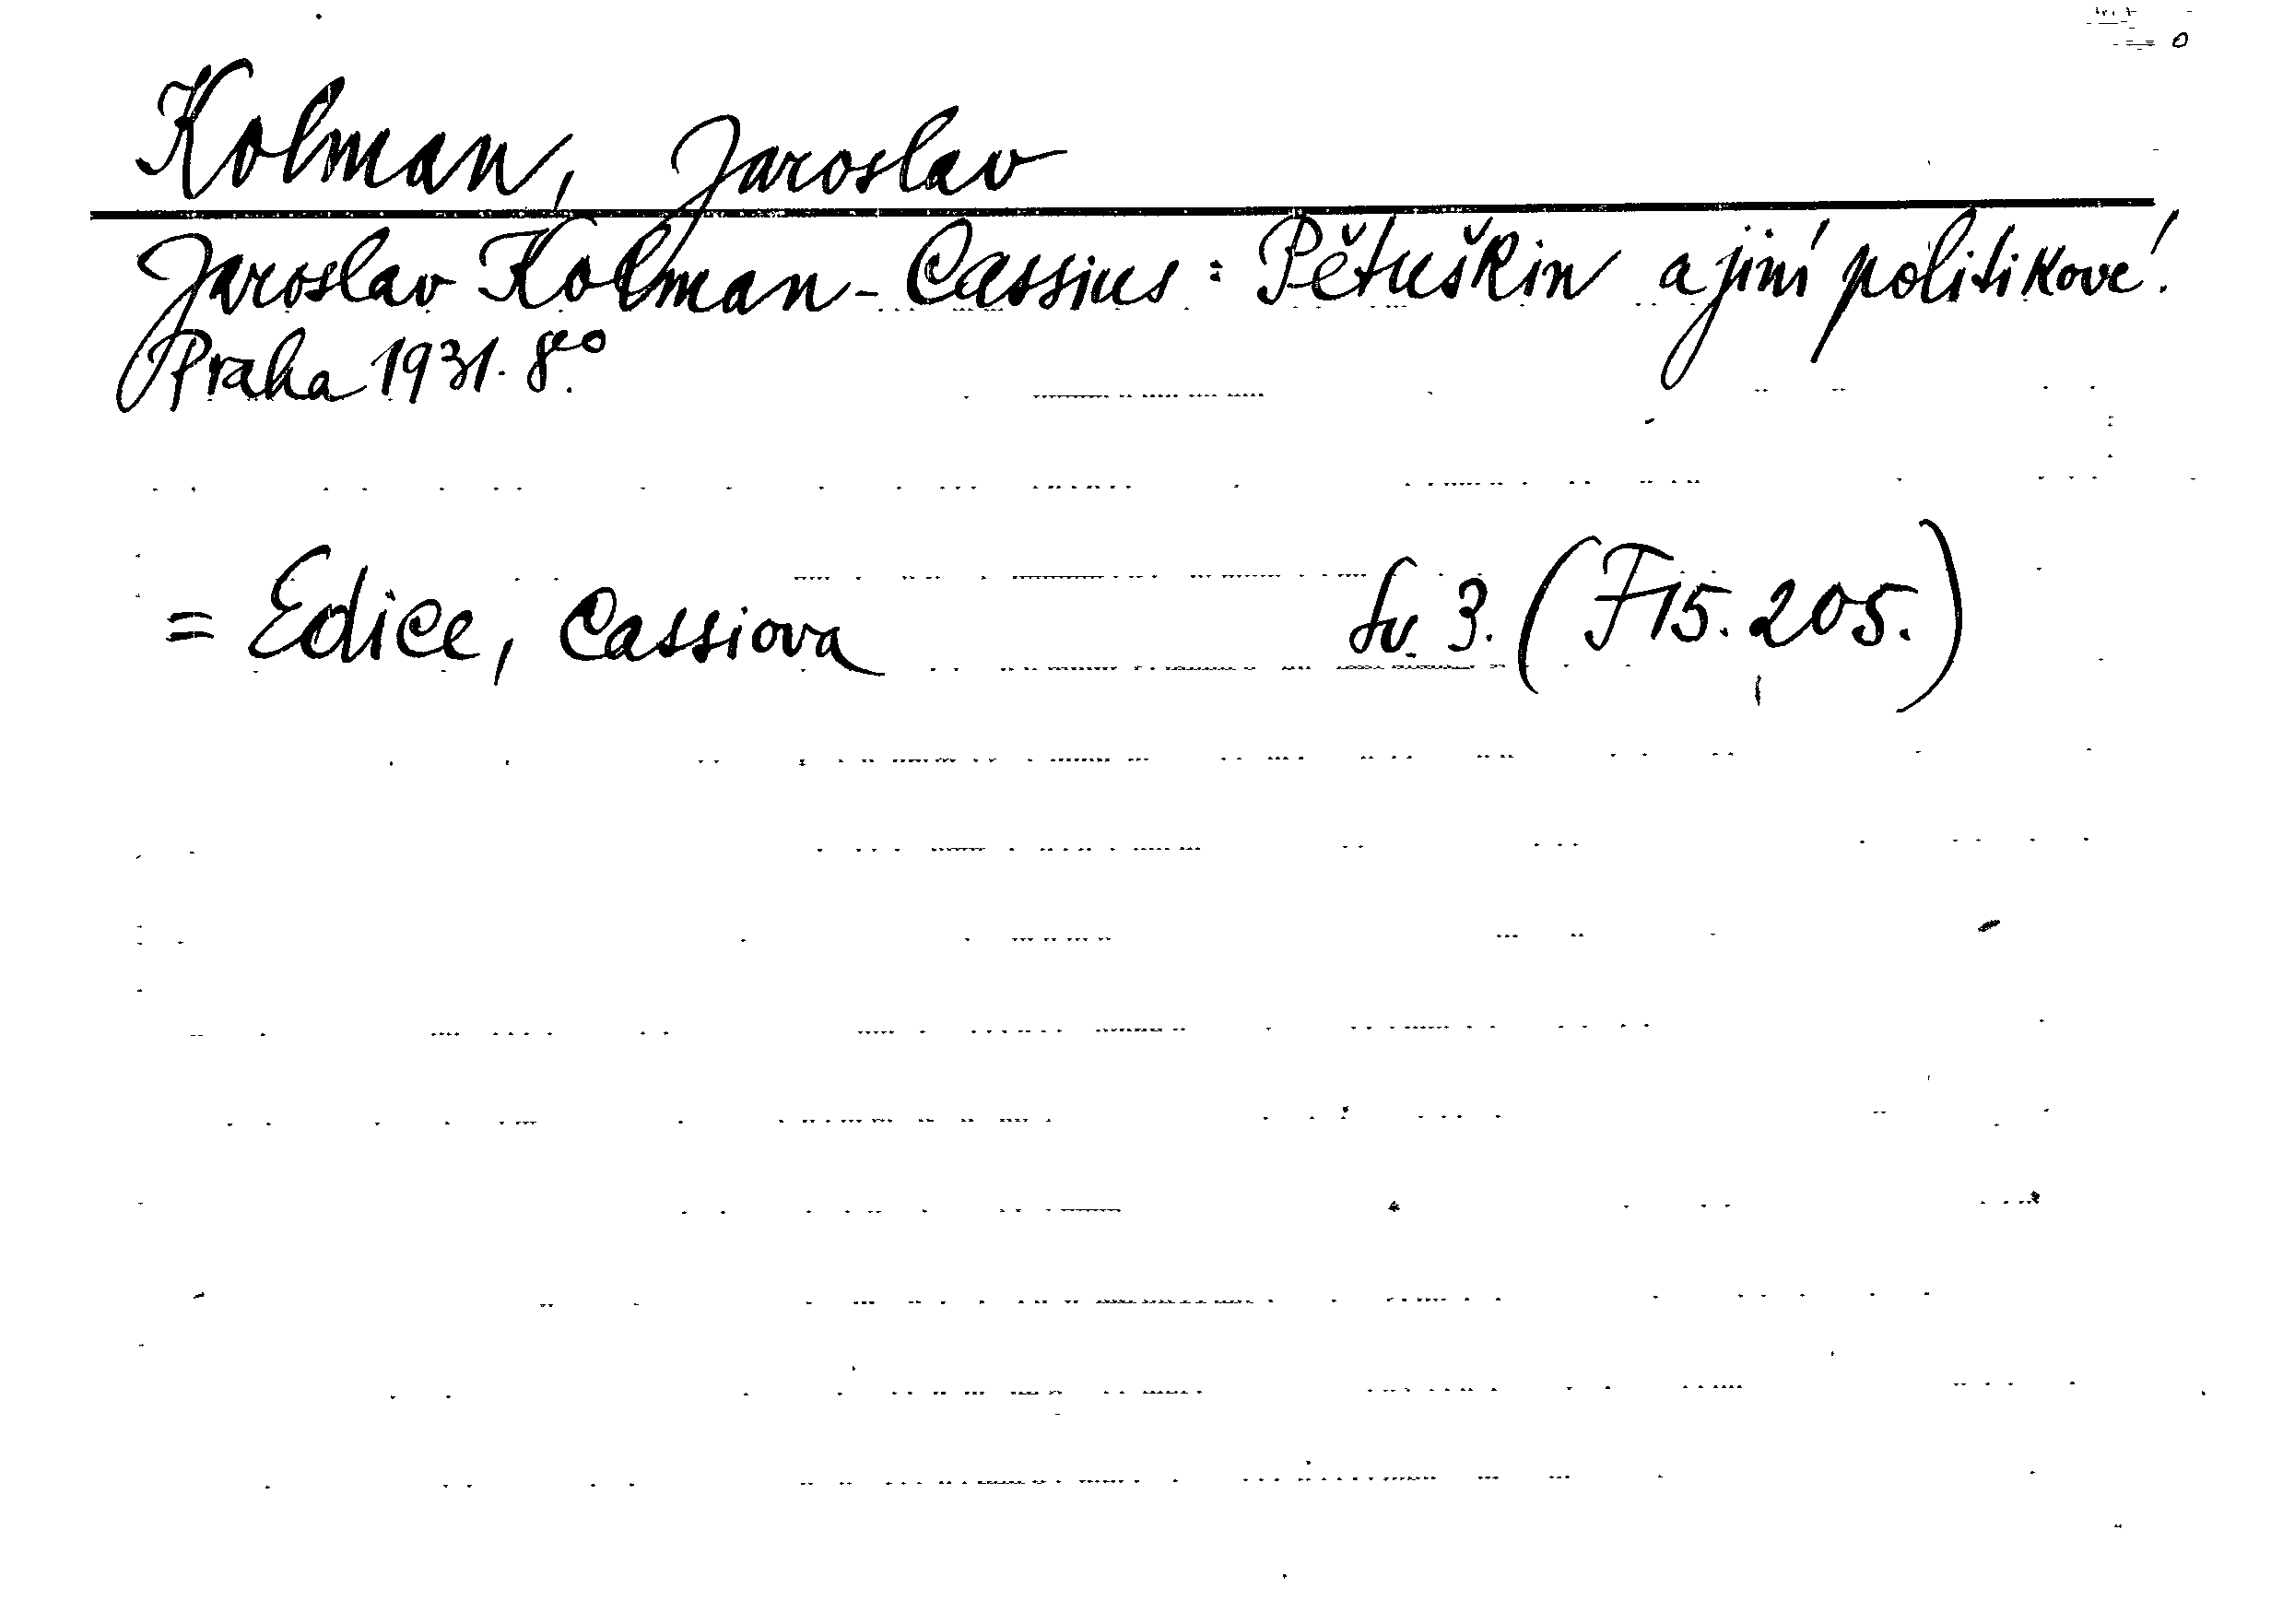 Kolman, Jaroslav
Jaroslav Kolman-Cassius: Pětuškin a jiní politikové.
Praha 1931. 8°.
= Edice, Cassiova Sv. 3. (F 15.205.)